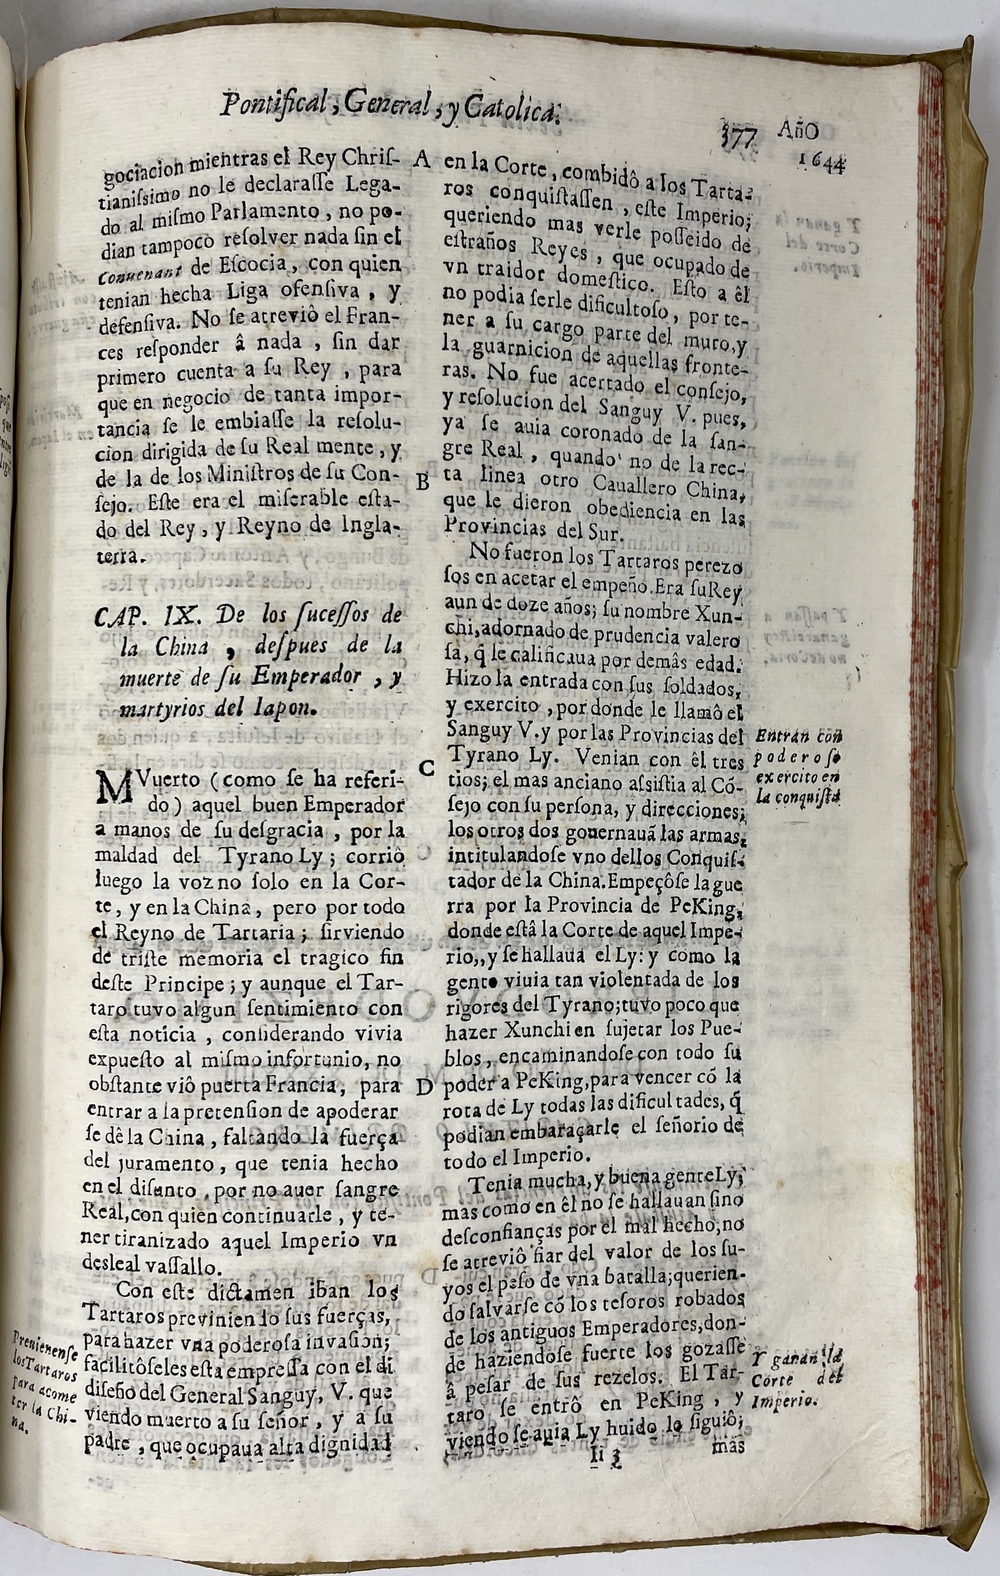 Pontifical, General, y Catolica.
377 AñO
1644
gociacion mientras el Rey Chriſ-
tianiſsimo no le declaraſſe Lega-
do al miſmo Parlamento, no po-
dian tampoco reſolver nada ſin el
Convenant de Eſcocia, con quien
tenian hecha Liga ofenſiva, y
defenſiva. No ſe atreviô el Fran-
ces reſponder â nada, ſin dar
primero cuenta a ſu Rey, para
que en negocio de tanta impor-
tancia ſe le embiaſſe la reſolu-
cion dirigida de ſu Real mente, y
de la de los Miniſtros de ſu Con-
ſejo. Eſte era el miſerable eſta-
do del Rey, y Reyno de Ingla-
terra.
CAP. IX. De los ſuceſſos de
la China, deſpues de la
muerte de ſu Emperador, y
martyrios del Iapon.
MVuerto (como ſe ha referi-
do) aquel buen Emperador
a manos de ſu deſgracia, por la
maldad del Tyrano Ly; corriô
luego la voz no ſolo en la Cor-
te, y en la China, pero por todo
el Reyno de Tartaria; ſirviendo
de triſte memoria el tragico fin
deſte Principe; y aunque el Tar-
taro tuvo algun ſentimiento con
eſta noticia, conſiderando vivia
expueſto al miſmo infortunio, no
obſtante viô puerta Francia, para
entrar a la pretenſion de apoderar
ſe dê la China, faltando la fuerça
del juramento, que tenia hecho
en el difunto, por no auer ſangre
Real, con quien continuarle, y te-
ner tiranizado aquel Imperio vn
desleal vaſſallo.
Con eſte dictamen iban los
Tartaros previniendo ſus fuerças,
para hazer vna poderoſa invaſion;
facilitôſeles eſta empreſſa con el di
diſeño del General Sanguy, V. que
viendo muerto a ſu ſeñor, y a ſu
padre, que ocupaua alta dignidad
Previenenſe
los Tartaros
para acome
ter la Chi-
na.
A
B
C
D
en la Corte, combidô a los Tarta-
ros conquiſtaſſen, eſte Imperio;
queriendo mas verle poſſeido de
eſtraños Reyes, que ocupado de
vn traidor domeſtico. Eſto a êl
no podia ſerle dificultoſo, por te-
ner a ſu cargo parte del muro, y
la guarnicion de aquellas fronte-
ras. No fue acertado el conſejo,
y reſolucion del Sanguy V. pues,
ya ſe auia coronado de la ſan-
gre Real, quando no de la rec-
ta linea otro Cauallero China,
que le dieron obediencia en las
Provincias del Sur.
No fueron los Tartaros perezo
ſos en acetar el empeño. Era ſu Rey
aun de doze años; ſu nombre Xun-
chi, adornado de prudencia valero
ſa, q̃ le calificaua por demâs edad.
Hizo la entrada con ſus ſoldados,
y exercito, por donde le llamô el
Sanguy V. y por las Provincias del
Tyrano Ly. Venian con êl tres
tios; el mas anciano aſsiſtia al Cõ-
ſejo con ſu perſona, y direcciones;
los otros dos gouernauã las armas,
intitulandoſe vno dellos Conquiſ-
tador de la China. Empeçôſe la gue
rra por la Provincia de PeKing,
donde eſtâ la Corte de aquel Impe-
rio,, y ſe hallaua el Ly: y como la
gente viuia tan violentada de los
rigores del Tyrano; tuvo poco que
hazer Xunchi en ſujetar los Pue-
blos, encaminandoſe con todo ſu
poder a PeKing, para vencer cõ la
rota de Ly todas las dificultades, q̃
podian embaraçarle el ſeñorio de
todo el Imperio.
Tenia mucha, y buena gente Ly;
mas como en êl no ſe hallauan ſino
deſconfianças por el mal hecho, no
ſe atreviô fiar del valor de los ſu-
yos el peſo de vna batalla; querien-
do ſalvarſe cõ los teſoros robados
de los antiguos Emperadores, don-
de haziendoſe fuerte los gozaſſe
â peſar de ſus rezelos. El Tar-
taro ſe entrô en PeKing, y
viendo ſe auia Ly huido le ſiguiô;
Ii 3 mas
Entran con
poderoſo
exercito en
la conquiſta
Y ganan la
Corte del
Imperio.